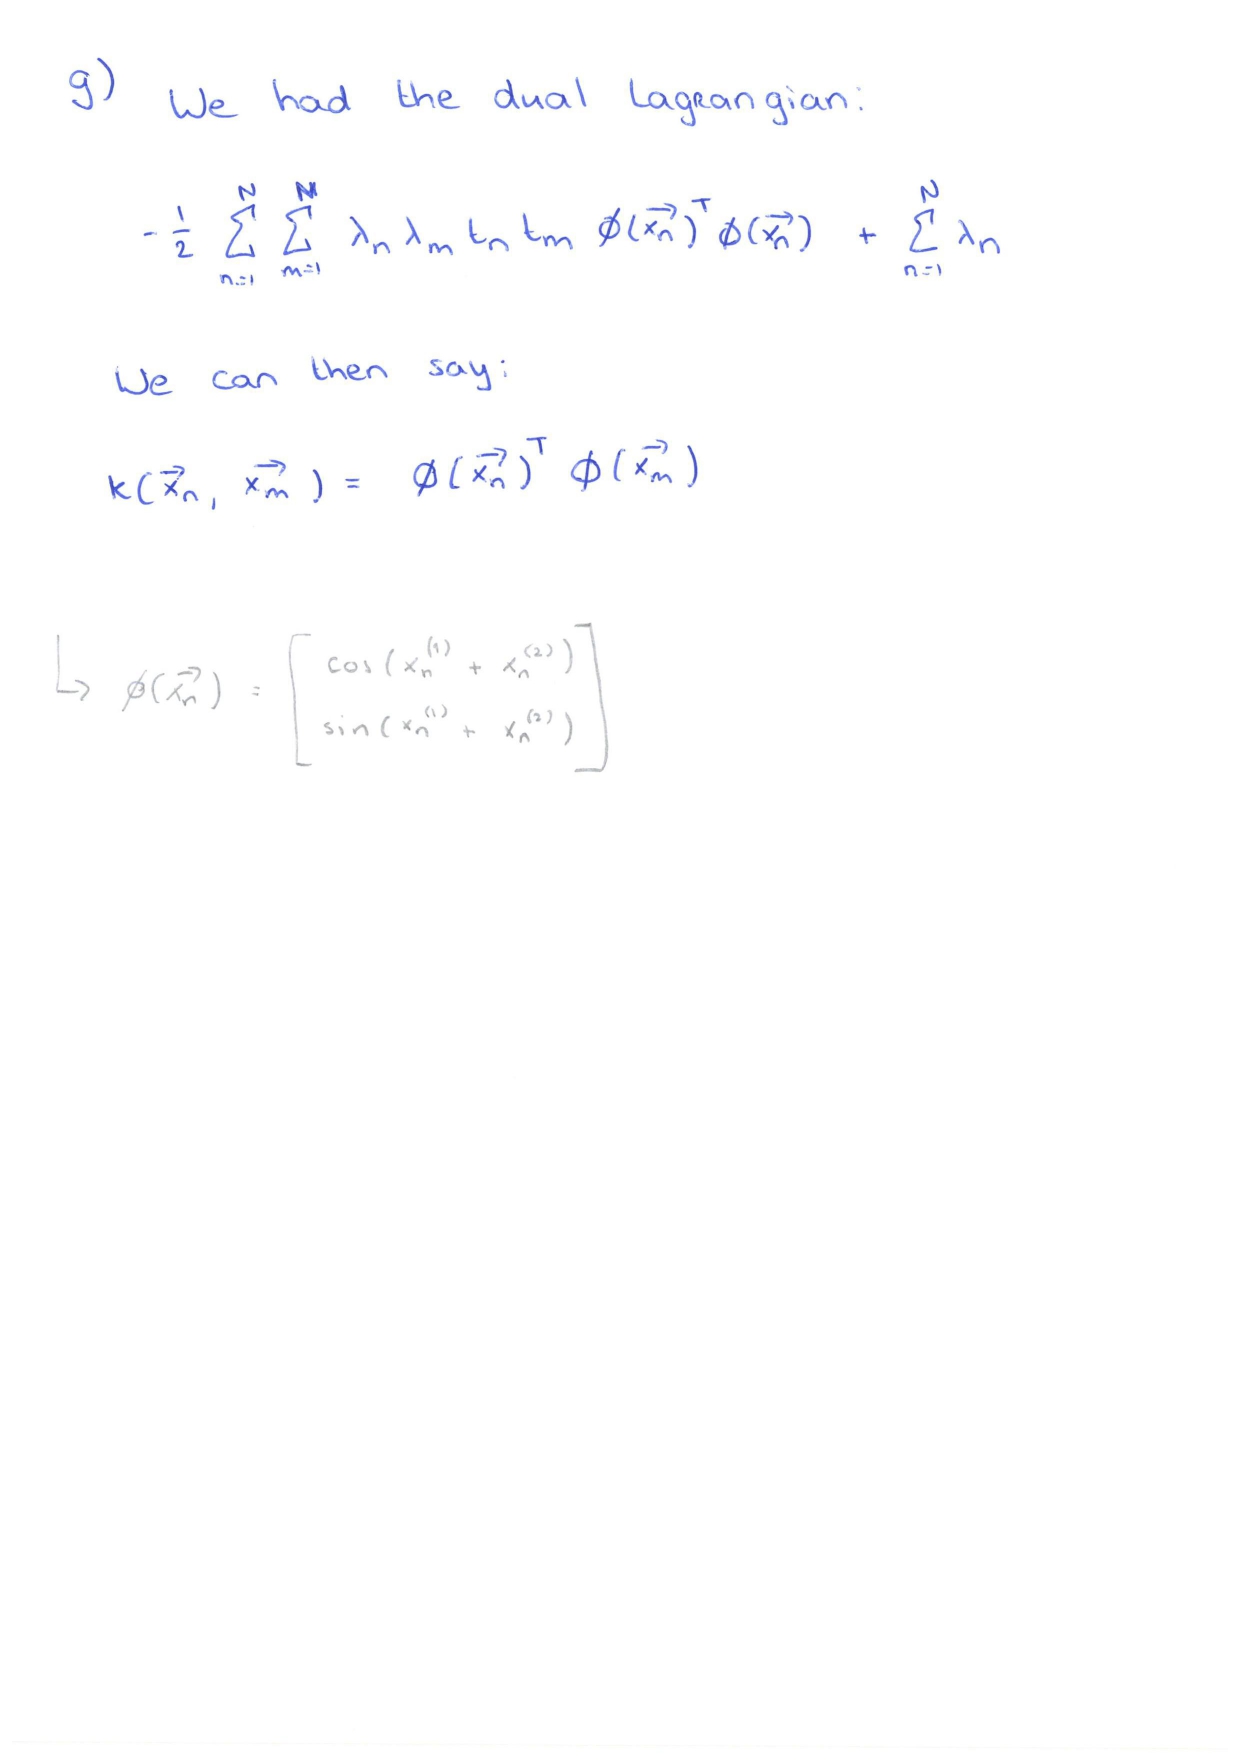 g) We had the dual Lagrangian:
-1/2 ∑_{n=1}^{N} ∑_{m=1}^{N} λ_n λ_m t_n t_m ϕ(x⃗_n)^T ϕ(x⃗_n) + ∑_{n=1}^{N} λ_n
We can then say:
k(x⃗_n, x⃗_m) = ϕ(x⃗_n)^T ϕ(x⃗_m)
↳ ϕ(x⃗_n) = [ cos(x_n^{(1)} + x_n^{(2)})
sin(x_n^{(1)} + x_n^{(2)}) ]